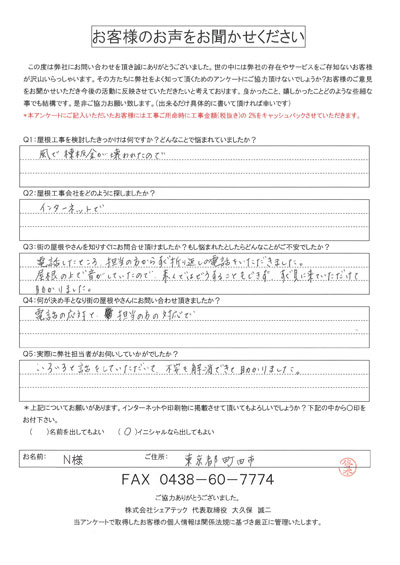 お客様のお声をお聞かせください
この度は弊社にお問い合わせを頂き誠にありがとうございました。世の中には弊社の存在やサービスをご存知ないお客様
が沢山いらっしゃいます。その方たちに弊社をよく知って頂くためのアンケートにご協力頂けないでしょうか?お客様のご意見
をお聞かせいただき今後の活動に反映させていただきたいと考えております。良かったこと、嬉しかったことどのような些細な
事でも結構です。是非ご協力お願い致します。(出来るだけ具体的に書いて頂ければ幸いです)
*本アンケートにご記入いただいたお客様には工事ご用命時に工事金額(税抜き)の2%をキャッシュバックさせていただきます。
Q1:屋根工事を検討したきっかけは何ですか?どんなことで悩まれていましたか?
風で棟板金が壊われたので
Q2:屋根工事会社をどのように探しましたか?
インターネットで
Q3:街の屋根やさんを知りすぐにお問合せ頂けましたか?もし悩まれたとしたらどんなことがご不安でしたか?
電話したところ、担当の方から即折り返しの電話をいただきました。
屋根の上で音がしていたので、素人ではどうすることもできず、即見に来ていただけて
助かりました。
Q4:何が決め手となり街の屋根やさんにお問い合わせ頂きましたか?
電話の応対で 担当の方の対応で
Q5:実際に弊社担当者がお伺いしていかがでしたか?
いろいろと話をしていただいて、不安も解消できて助かりました。
*上記についてお願いがあります。インターネットや印刷物に掲載させて頂いてもよろしいでしょうか?下記の中から〇印を
お付下さい。
( )名前を出してもよい (〇)イニシャルなら出してもよい
お名前: N様 ご住所: 東京都町田市
FAX 0438-60-7774
ご協力ありがとうございました。
株式会社シェアテック 代表取締役 大久保 誠二
当アンケートで取得したお客様の個人情報は関係法規に基づき厳正に管理いたします。